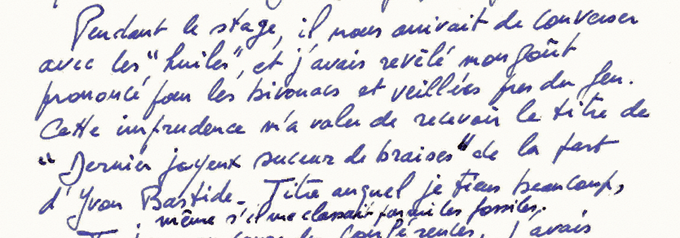 Pendant le stage, il nous arrivait de converser
avec les "huiles", et j'avais revêlé mon goût
prononcé pour les bivouacs et veillées près du feu.
Cette imprudence m'a valu de recevoir le titre de
"Dernier joyeux suceur de braises" de la part
d'Yvon Bastide. Titre auquel je tiens beaucoup,
même s'il me classait parmi les fossiles.
conférences, j'avais